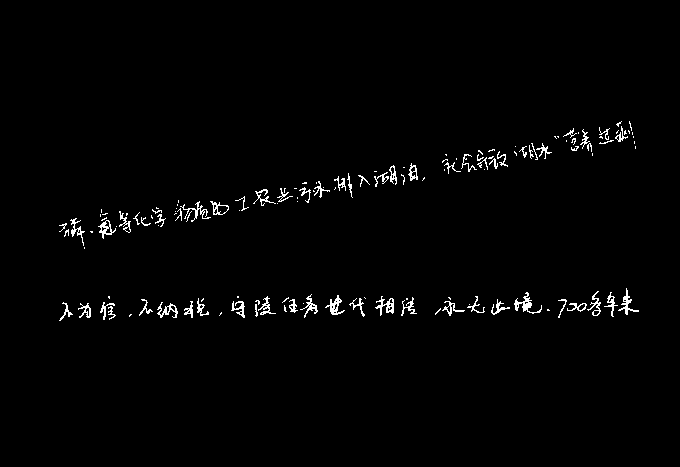 磷、氮等化学物质的工农业污水排入湖泊，就会导致湖水"营养过剩
不为官，不纳税，守陵任务世代相传，永无止境、700多年来